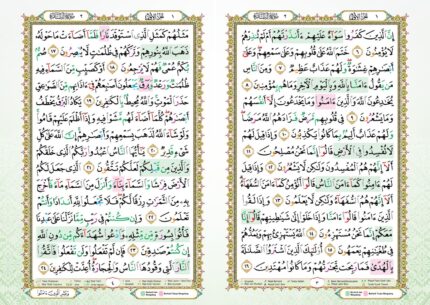 إِنَّ الَّذِينَ كَفَرُوا سَوَاءٌ عَلَيْهِمْ ءَأَنذَرْتَهُمْ أَمْ لَمْ تُنذِرْهُمْ
لَا يُؤْمِنُونَ ٦ خَتَمَ اللَّهُ عَلَىٰ قُلُوبِهِمْ وَعَلَىٰ سَمْعِهِمْ وَعَلَىٰ
أَبْصَٰرِهِمْ غِشَٰوَةٌ وَلَهُمْ عَذَابٌ عَظِيمٌ ٧ وَمِنَ النَّاسِ
مَن يَقُولُ ءَامَنَّا بِاللَّهِ وَبِالْيَوْمِ الْآخِرِ وَمَا هُم بِمُؤْمِنِينَ ٨
يُخَٰدِعُونَ اللَّهَ وَالَّذِينَ ءَامَنُوا وَمَا يَخْدَعُونَ إِلَّا أَنفُسَهُمْ
وَمَا يَشْعُرُونَ ٩ فِي قُلُوبِهِم مَّرَضٌ فَزَادَهُمُ اللَّهُ مَرَضًا
وَلَهُمْ عَذَابٌ أَلِيمٌ بِمَا كَانُوا يَكْذِبُونَ ١٠ وَإِذَا قِيلَ لَهُمْ
لَا تُفْسِدُوا فِي الْأَرْضِ قَالُوا إِنَّمَا نَحْنُ مُصْلِحُونَ ١١
أَلَا إِنَّهُمْ هُمُ الْمُفْسِدُونَ وَلَٰكِن لَّا يَشْعُرُونَ ١٢ وَإِذَا قِيلَ
لَهُمْ ءَامِنُوا كَمَا ءَامَنَ النَّاسُ قَالُوا أَنُؤْمِنُ كَمَا ءَامَنَ السُّفَهَاءُ
أَلَا إِنَّهُمْ هُمُ السُّفَهَاءُ وَلَٰكِن لَّا يَعْلَمُونَ ١٣ وَإِذَا لَقُوا
الَّذِينَ ءَامَنُوا قَالُوا ءَامَنَّا وَإِذَا خَلَوْا إِلَىٰ شَيَٰطِينِهِمْ قَالُوا إِنَّا
مَعَكُمْ إِنَّمَا نَحْنُ مُسْتَهْزِءُونَ ١٤ اللَّهُ يَسْتَهْزِئُ بِهِمْ وَيَمُدُّهُمْ
فِي طُغْيَٰنِهِمْ يَعْمَهُونَ ١٥ أُولَٰئِكَ الَّذِينَ اشْتَرَوُا الضَّلَٰلَةَ
بِالْهُدَىٰ فَمَا رَبِحَت تِّجَٰرَتُهُمْ وَمَا كَانُوا مُهْتَدِينَ ١٦
مَثَلُهُمْ كَمَثَلِ الَّذِي اسْتَوْقَدَ نَارًا فَلَمَّا أَضَاءَتْ مَا حَوْلَهُ
ذَهَبَ اللَّهُ بِنُورِهِمْ وَتَرَكَهُمْ فِي ظُلُمَٰتٍ لَّا يُبْصِرُونَ ١٧ صُمٌّ
بُكْمٌ عُمْيٌ فَهُمْ لَا يَرْجِعُونَ ١٨ أَوْ كَصَيِّبٍ مِّنَ السَّمَاءِ فِيهِ
ظُلُمَٰتٌ وَرَعْدٌ وَبَرْقٌ يَجْعَلُونَ أَصَٰبِعَهُمْ فِي ءَاذَانِهِم مِّنَ الصَّوَٰعِقِ
حَذَرَ الْمَوْتِ وَاللَّهُ مُحِيطٌ بِالْكَٰفِرِينَ ١٩ يَكَادُ الْبَرْقُ يَخْطَفُ
أَبْصَٰرَهُمْ كُلَّمَا أَضَاءَ لَهُم مَّشَوْا فِيهِ وَإِذَا أَظْلَمَ عَلَيْهِمْ قَامُوا
وَلَوْ شَاءَ اللَّهُ لَذَهَبَ بِسَمْعِهِمْ وَأَبْصَٰرِهِمْ إِنَّ اللَّهَ عَلَىٰ كُلِّ
شَيْءٍ قَدِيرٌ ٢٠ يَٰأَيُّهَا النَّاسُ اعْبُدُوا رَبَّكُمُ الَّذِي خَلَقَكُمْ
وَالَّذِينَ مِن قَبْلِكُمْ لَعَلَّكُمْ تَتَّقُونَ ٢١ الَّذِي جَعَلَ لَكُمُ
الْأَرْضَ فِرَٰشًا وَالسَّمَاءَ بِنَاءً وَأَنزَلَ مِنَ السَّمَاءِ مَاءً فَأَخْرَجَ
بِهِ مِنَ الثَّمَرَٰتِ رِزْقًا لَّكُمْ فَلَا تَجْعَلُوا لِلَّهِ أَندَادًا وَأَنتُمْ
تَعْلَمُونَ ٢٢ وَإِن كُنتُمْ فِي رَيْبٍ مِّمَّا نَزَّلْنَا عَلَىٰ عَبْدِنَا
فَأْتُوا بِسُورَةٍ مِّن مِّثْلِهِ وَادْعُوا شُهَدَاءَكُم مِّن دُونِ اللَّهِ
إِن كُنتُمْ صَٰدِقِينَ ٢٣ فَإِن لَّمْ تَفْعَلُوا وَلَن تَفْعَلُوا فَاتَّقُوا
النَّارَ الَّتِي وَقُودُهَا النَّاسُ وَالْحِجَارَةُ أُعِدَّتْ لِلْكَٰفِرِينَ ٢٤